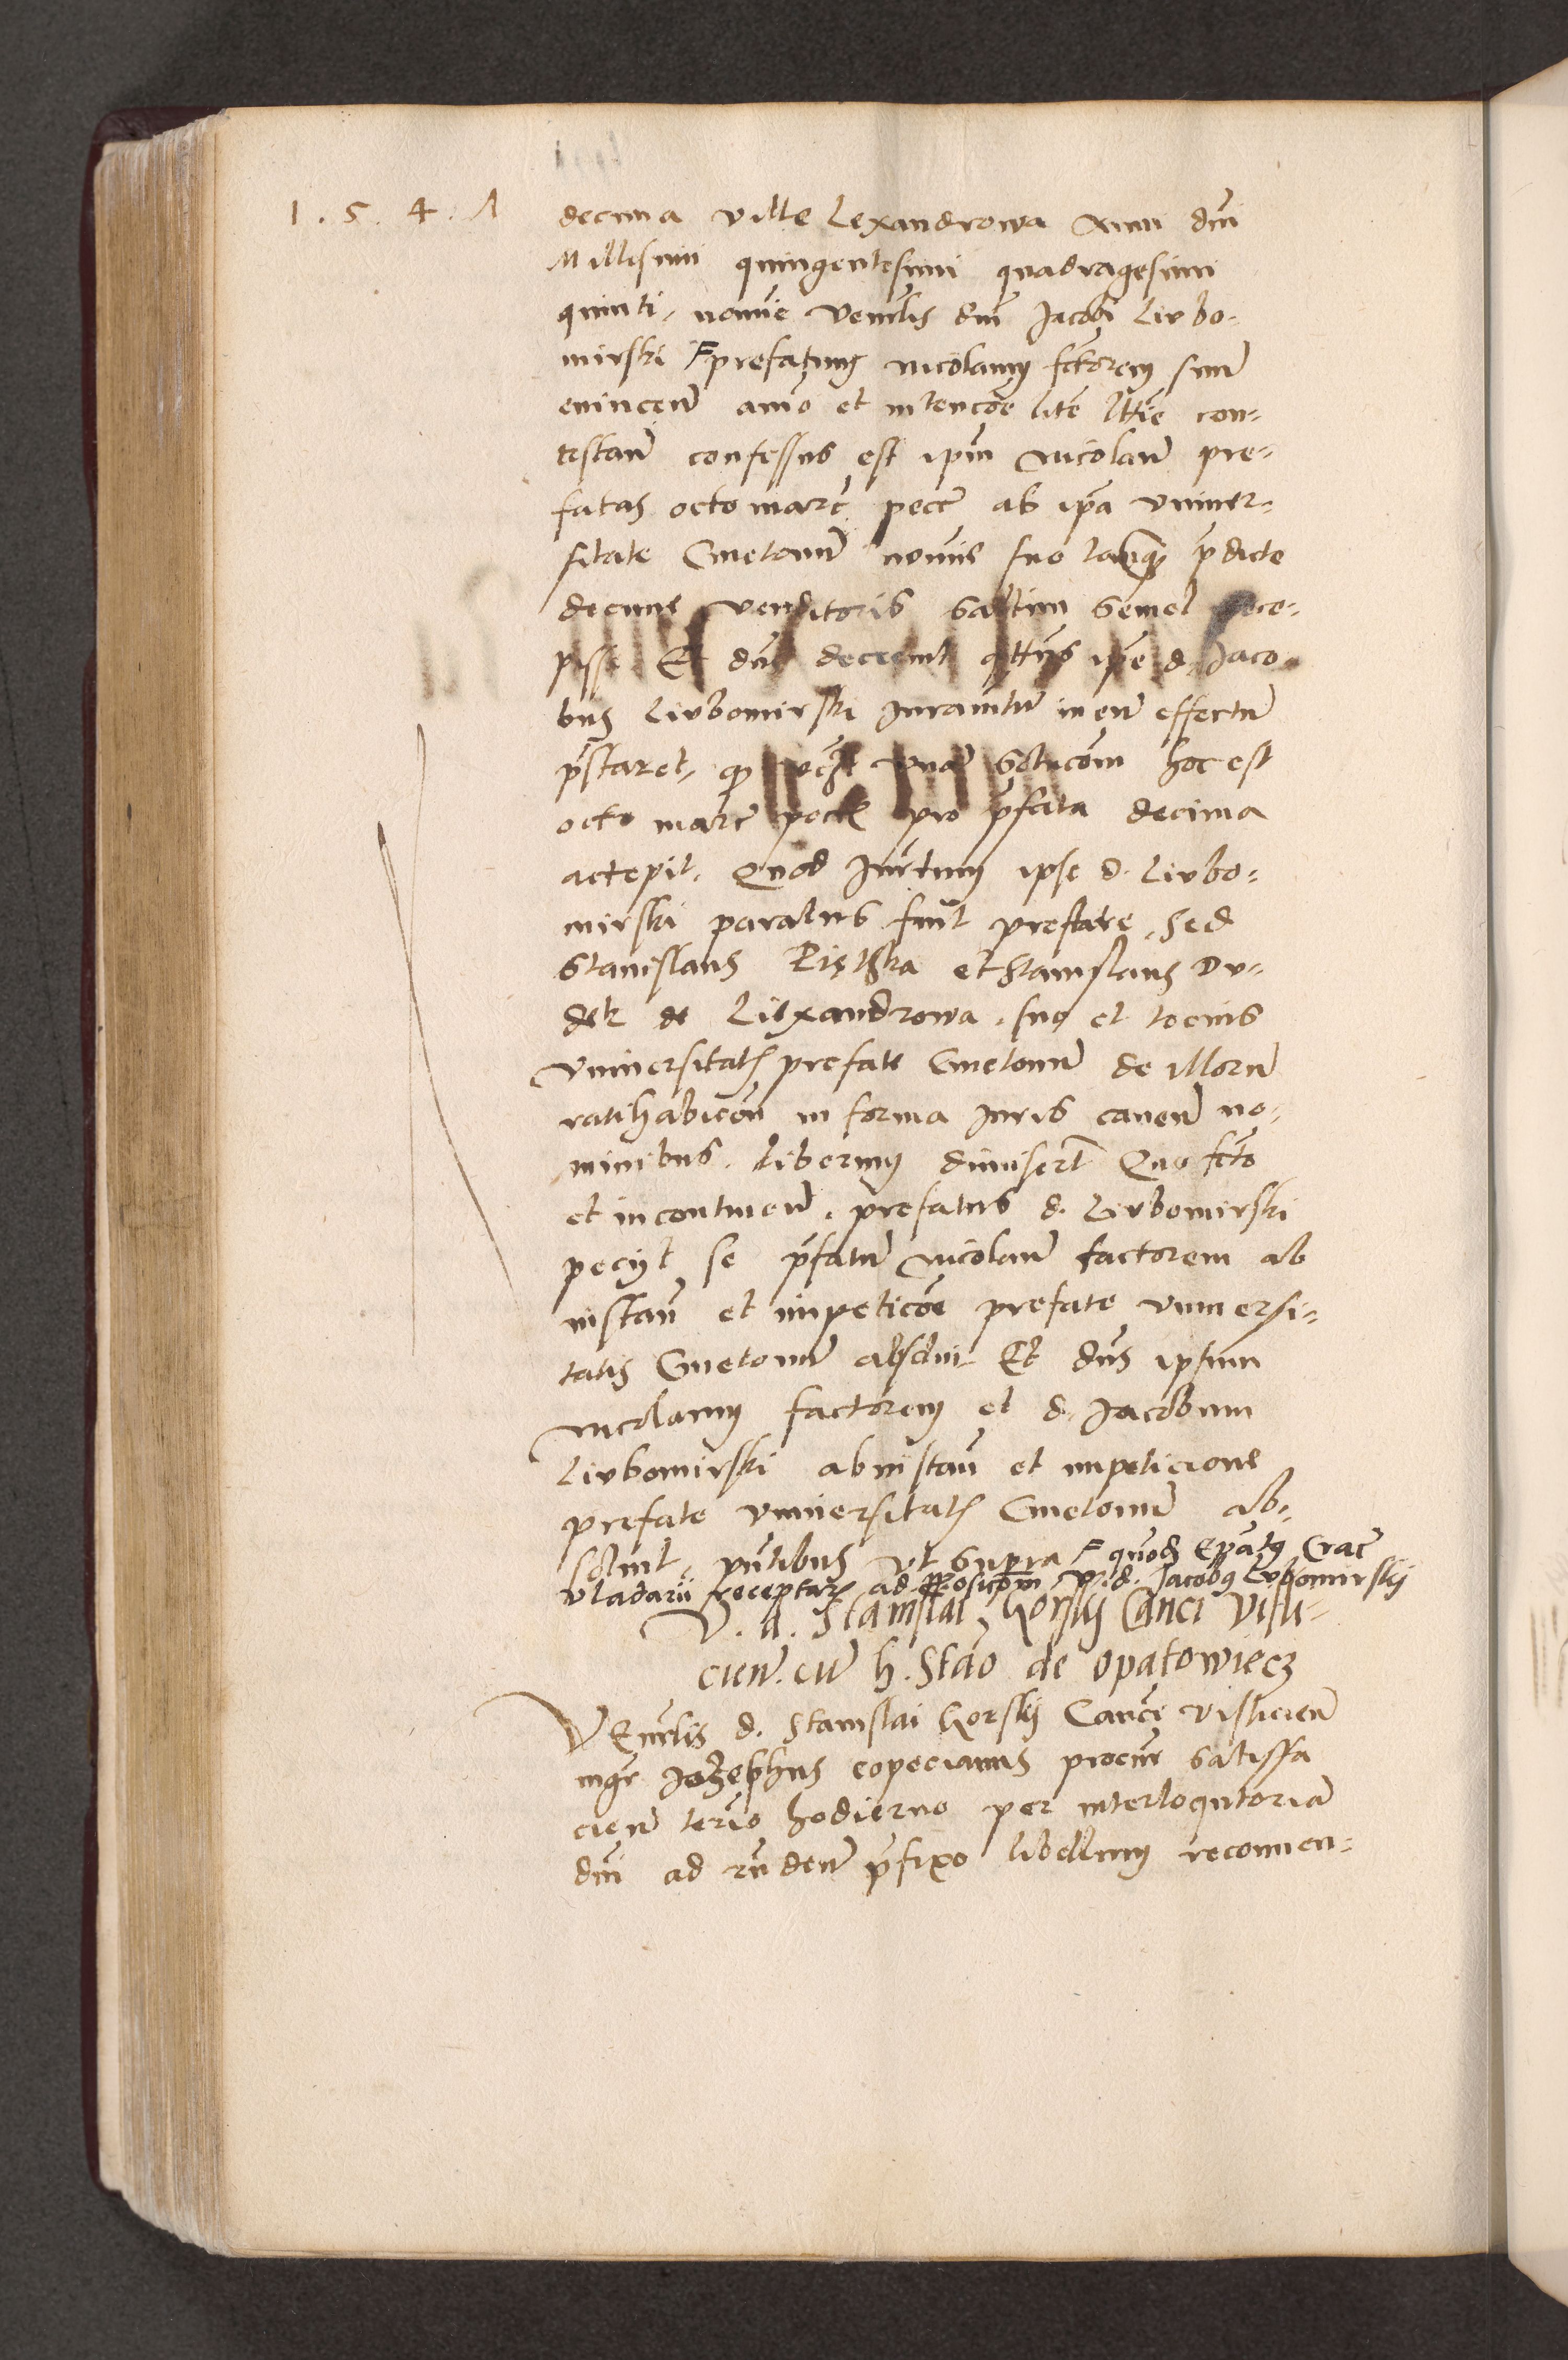 1 . 5 . 4 . 1
decima ville Lexandrowa Anni dni
Millesimi quingentesimi quadragesimi
quinti, nomine venerlis dni Jacobi Liubo-
mirski F prefatum Nicolaum fctorem suum
evincen animo et intencoe litem lttie con-
testan confessus est ipm Nicolaum pre-
fatas octo marc pecc ab ipa univer-
sitate Cmetonum nomine suo tanquam pdicte
decime venditoris saltim semel rece-
pisse Et dns decrevit quttus ipse d. Jaco-
bus Liubomirski Juramentum in eum effectum
pstaret, quod unam solucom hoc est
octo marc pec pro pfata decima
accepit. Quod Jurtum ipse d. Liubo-
mirski paratus fuit prestare, Sed
Stanislaus et Stanislaus Du-
dek de Liexandrowa, suo et tocius
universitatis prefate Cmetonum de illorum
ratihabicoe in forma Juris caven no-
minibus. liberum dimisert Quo fcto
et incontinen, prefatus d. Liubomirski
peciit se pfatum Nicolaum factorem ab
instan et impeticoe prefate universi-
tatis Cmetonum absolvi Et dns ipsum
Nicolaum factorem et d. Jacobum
Liubomirski ab instan et impeticione
prefate universitatis Cmetonum ab-
solvit, pntibus ut supra F quond Epatus Crac
vladarii receptar ad pposicom v. d. Jacobus Lubomirskij
V. d. Stanislai Gorskij Canci Visli-
cien. cum h. Stao de Opatowiecz
VEnerlis d. Stanislai Gorskij Canci Vislicien
mgr Jozephus copecianus procur satisfa
cien termo hodierno per interloqutoriam
dni ad rnden pfixo libellum reconven-